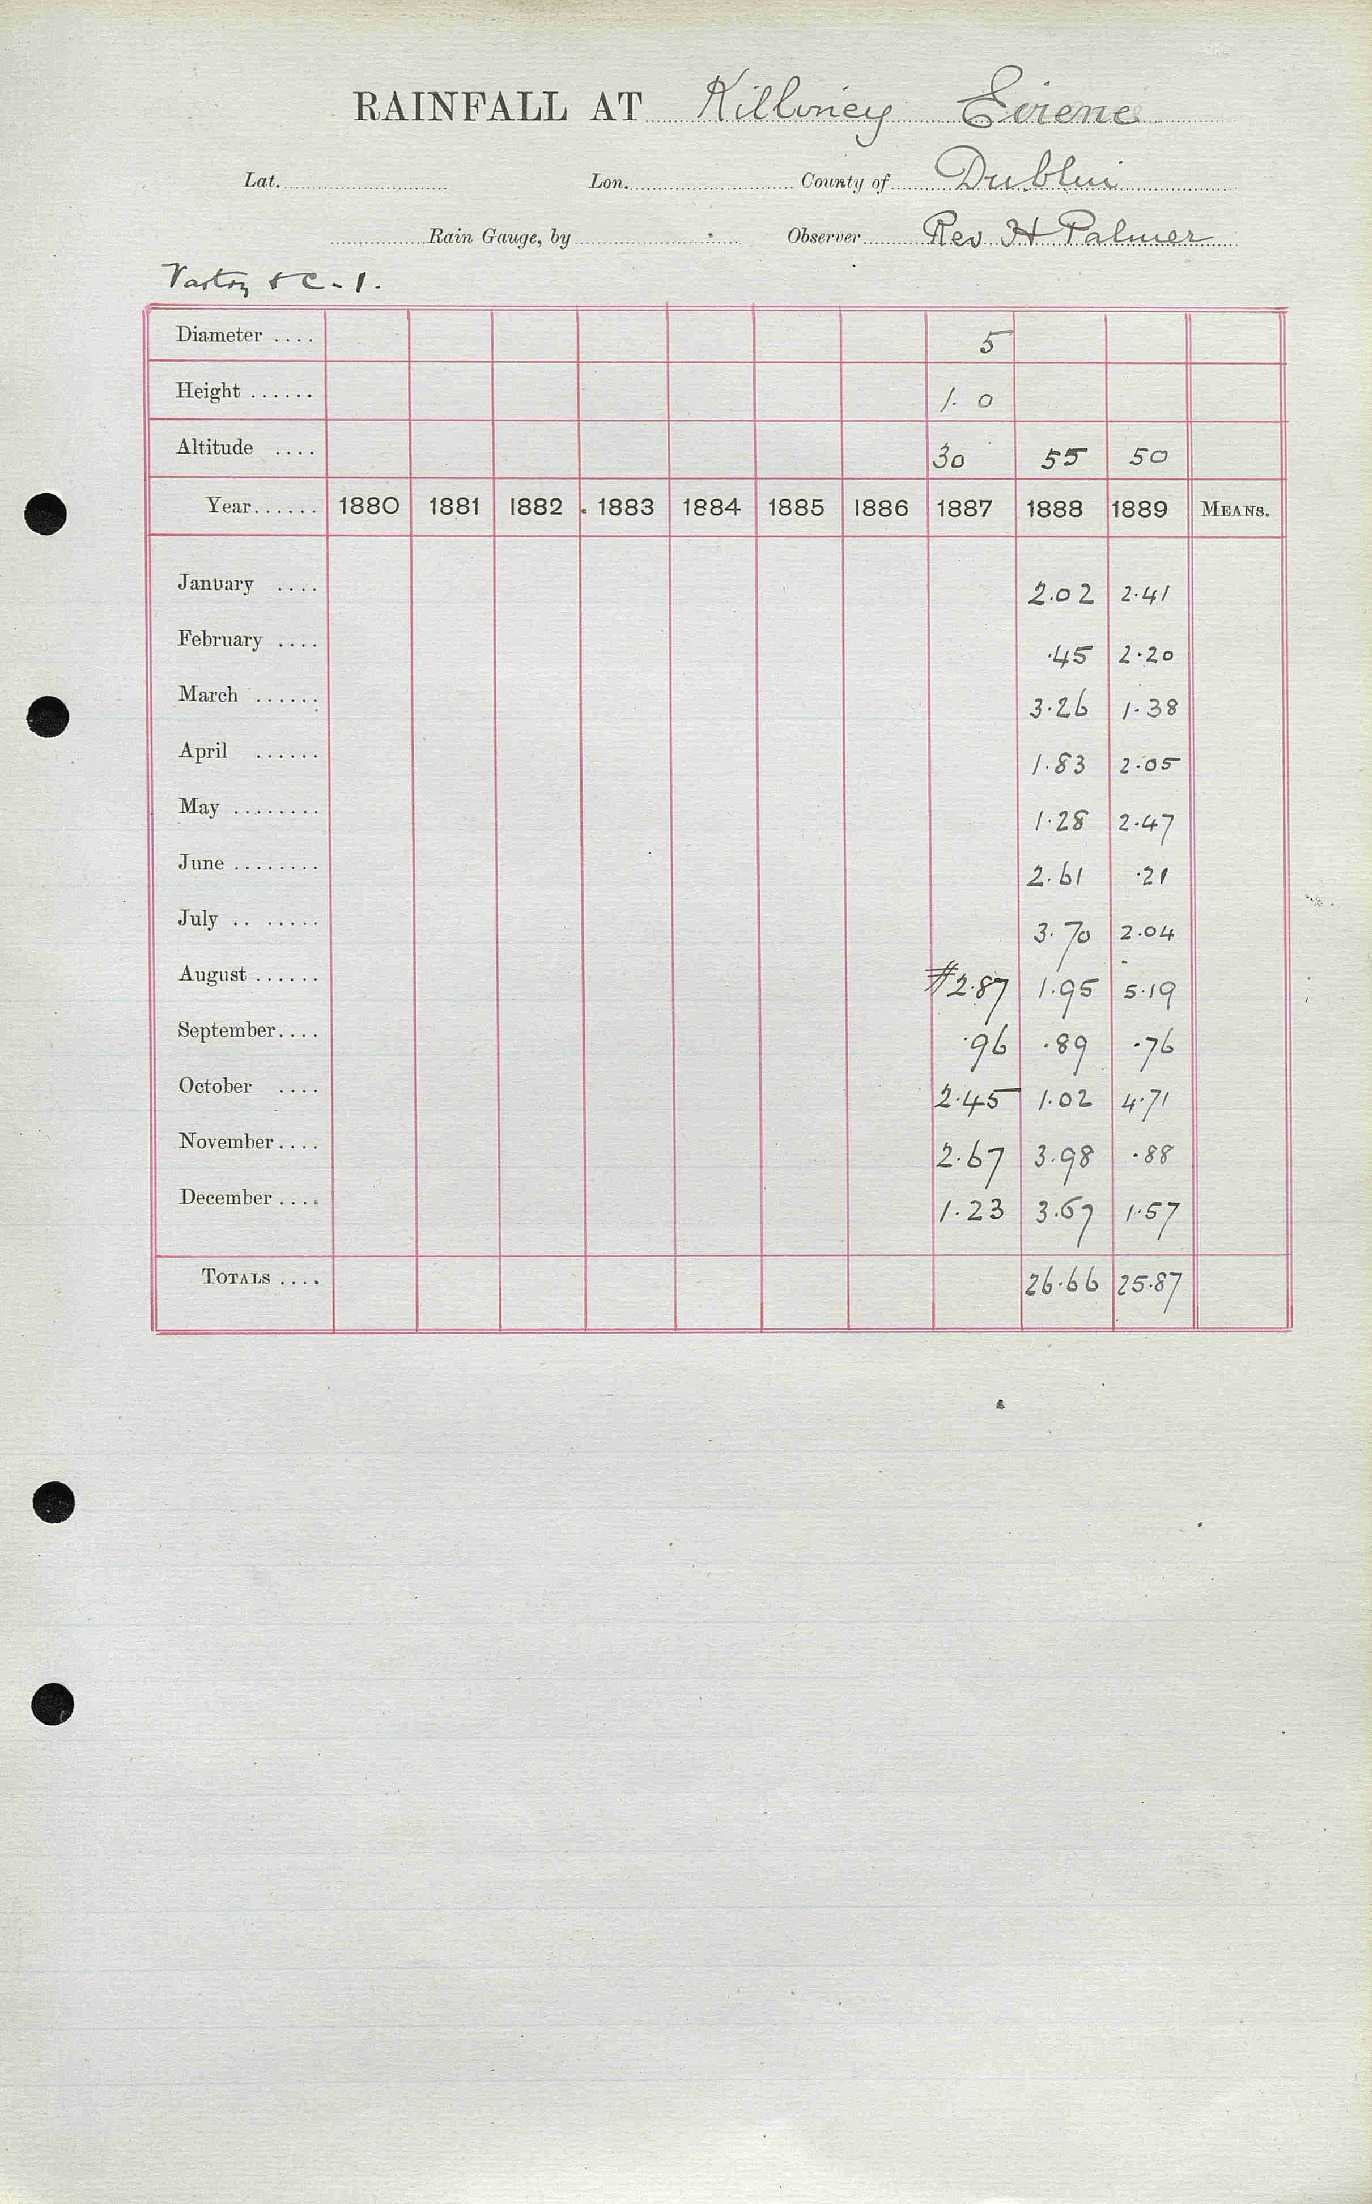 RAINFALL AT Killiney Eirene
Lat. Lon. County of Dublin
Rain Gauge, by Observer Rev H Palmer
Vartry & C - 1.
Diameter .... 5
Height ...... 1. 0
Altitude .... 30 55 50
Year...... 1880 1881 1882 1883 1884 1885 1886 1887 1888 1889 MEANS.
January .... 2.02 2.41
February .... .45 2.20
March ...... 3.26 1.38
April ...... 1.83 2.05
May ........ 1.28 2.47
June ........ 2.61 .21
July .. ...... 3.70 2.04
August ...... #2.87 1.95 5.19
September.... .96 .89 .76
October .... 2.45 1.02 4.71
November.... 2.67 3.98 .88
December.... 1.23 3.67 1.57
TOTALS .... 26.66 25.87